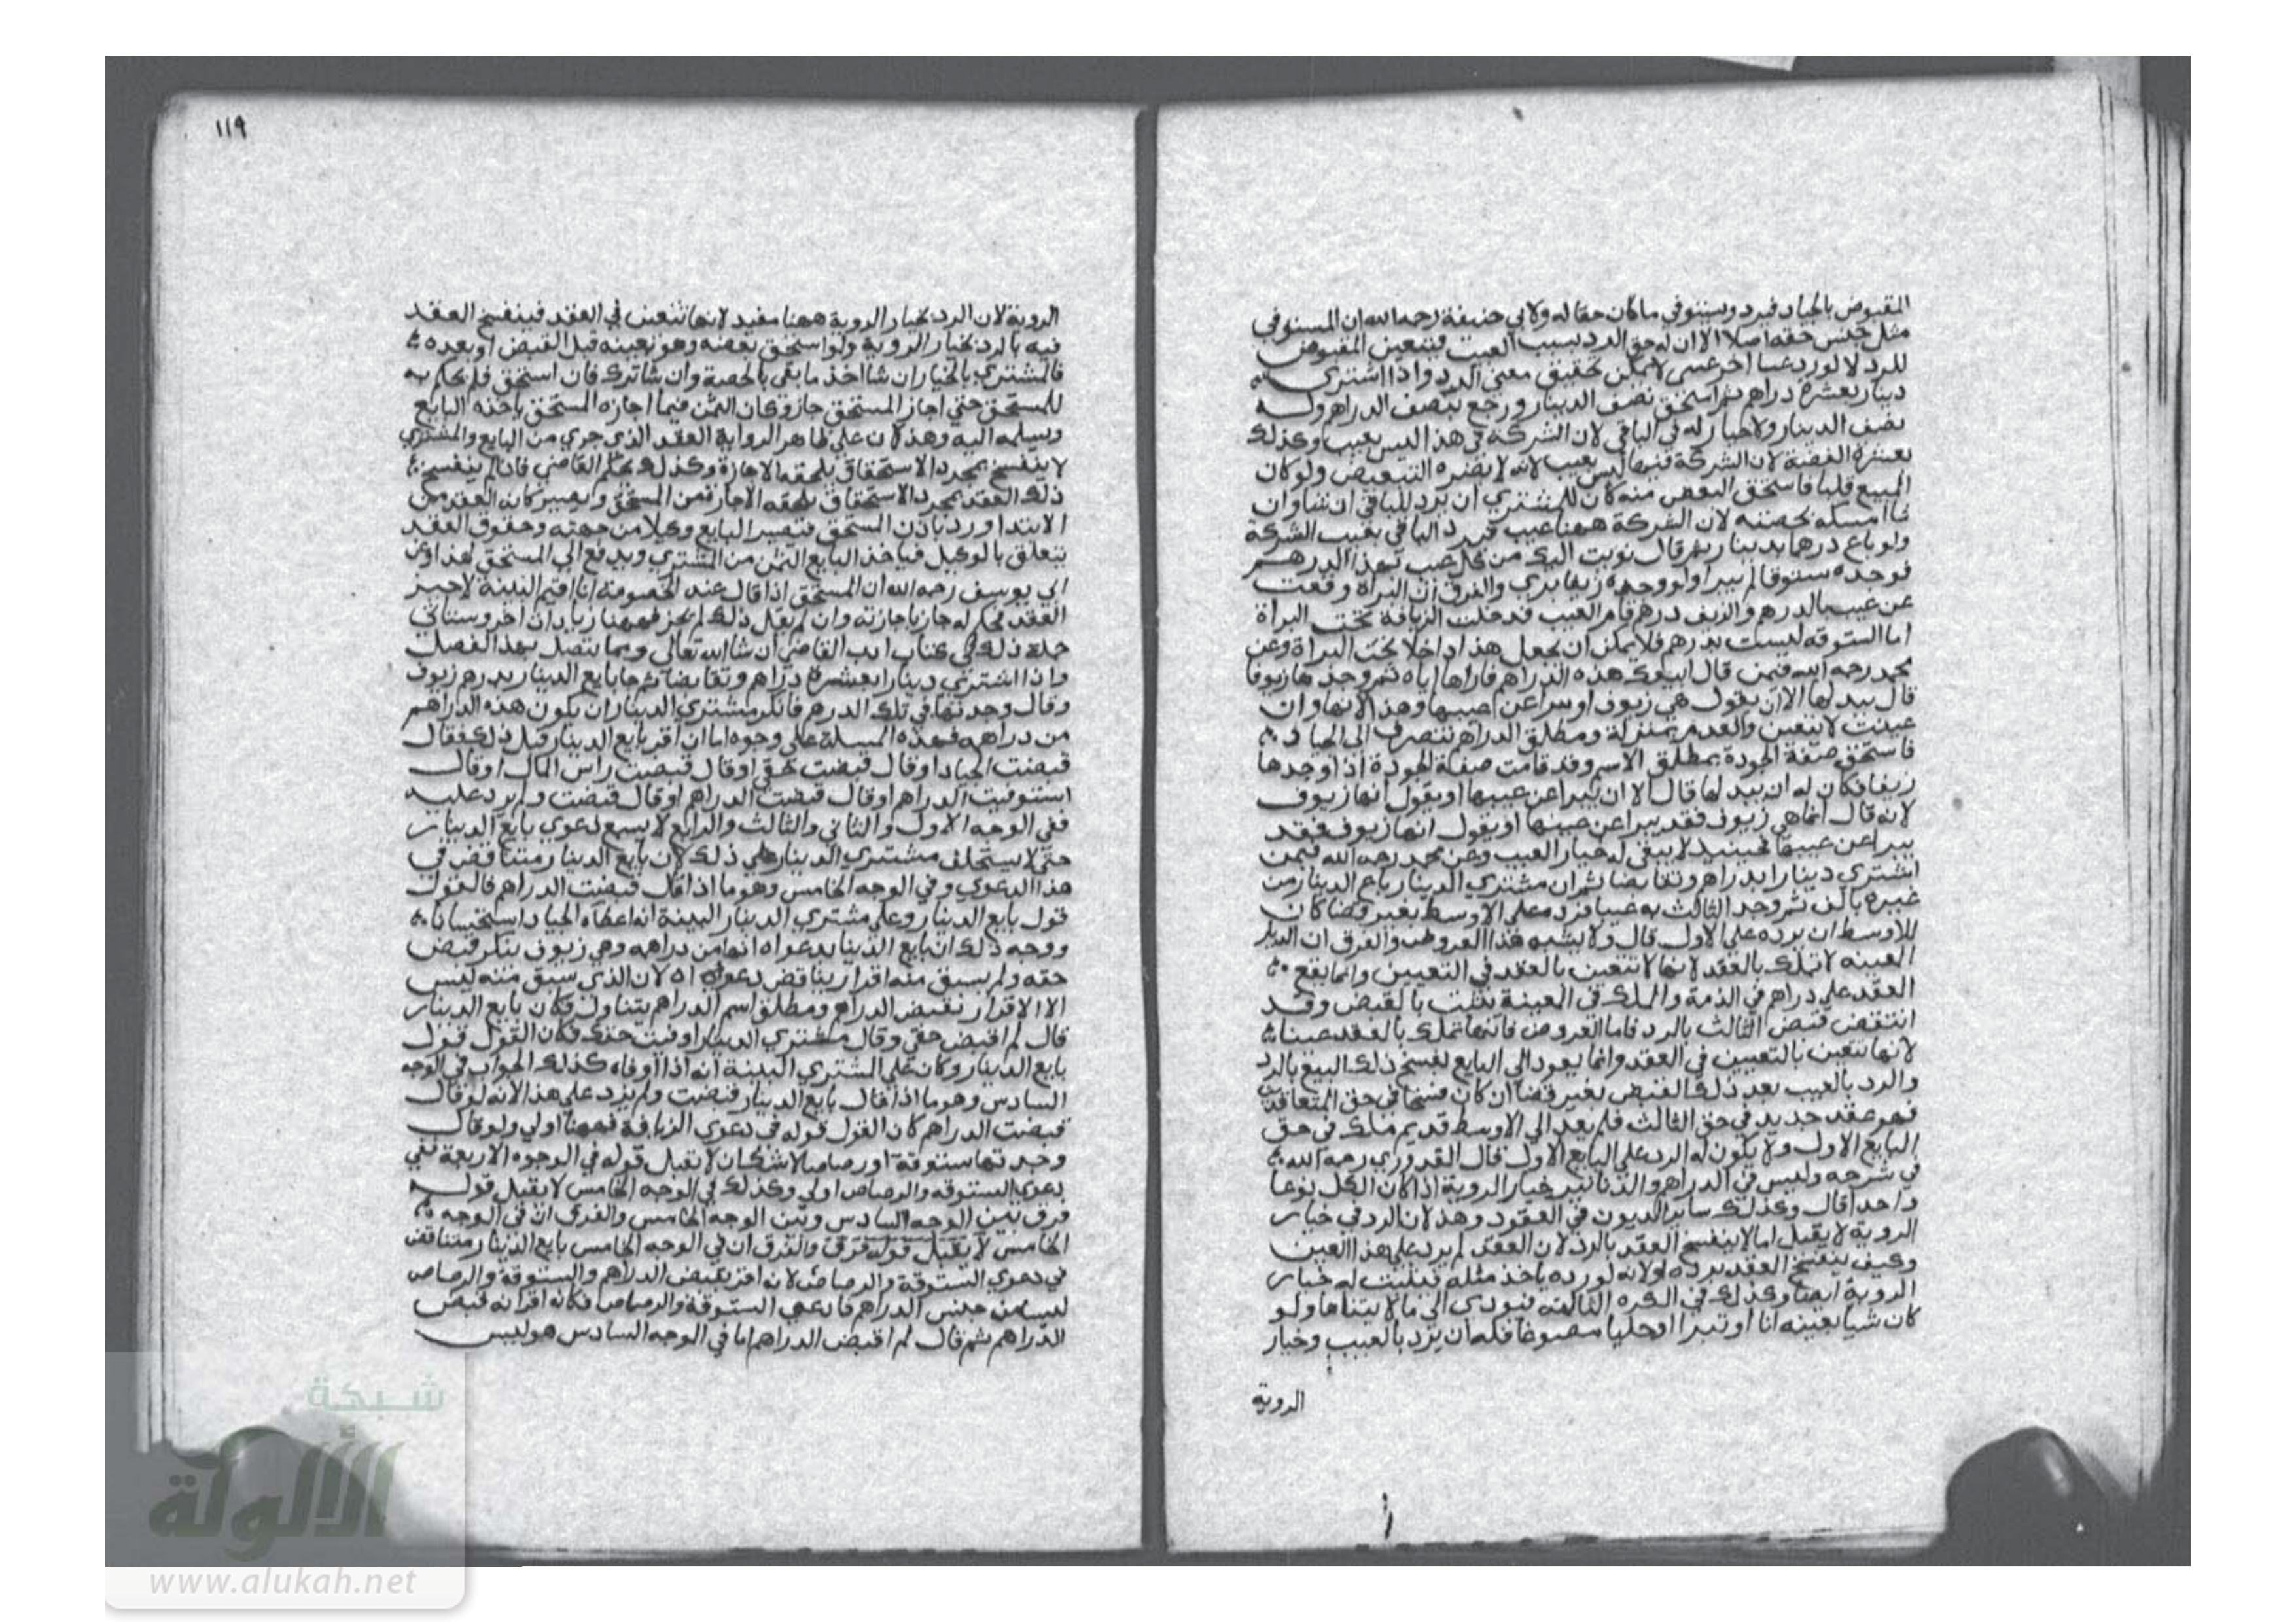 المقبوض بالجياد فيرد ويستوفي ما كان حقا له ولابي حنيفة رحمه الله ان المستوفي
مثل جنس حقه اصلا الا ان له حق الرد بسبب العيب ويتعين المقبوض
للرد لا لورد عينا اخر عسى لا يمكن تحقيق معنى الرد واذا اشترى
دينار بعشرة دراهم ثم استحق نصف الدينار ورجع بنصف الدراهم وله
نصف الدينار ولا خيار له في الباقي لان الشركة في هذا ليس بعيب وكذلك
بعشرة الفضة لان الشركة فيها ليس بعيب لانه لا يضره التبعيض ولو كان
المبيع قلبا فاستحق البعض منه كان للمشتري ان يرد الباقي ان شا وان
شا امسكه بحصته لان الشركة ههنا عيب فيرد الباقي بعيب الشركة
ولو باع درهما بدينار ثم قال نويت اليك من كل عيب بهذا الدرهم
فوجده ستوقا لم يبرا ولو وجده زيفا بري والفرق ان البراة وقعت
عن عيب بالدرهم والزيف درهم قام العيب فدخلت الزيافة تحت البراة
اما الستوقه ليست بدرهم فلا يمكن ان يجعل هذا داخلا تحت البراة وعن
محمد رحمه الله فيمن قال ابيعك هذه الدراهم فاراها اياه ثم وجدها زيوفا
قال يبدلها الا ان يقول هي زيوف او يبرا عن عيبها وهذا لانها وان
عينت لا تتعين والعدم بمنزلة ومطلق الدراهم تنصرف الى الجياد
فاستحق صفة الجودة بمطلق الاسم وقد قامت صفة الجودة اذا وجدها
زيفا فكان له ان يبدلها قال الا ان يبرا عن عيبها او يقول انها زيوف
لانه قال انما هي زيوف فقد يبرا عن عيبها او يقول انها زيوف فقد
يبرا عن عيبها فحينيد لا يبقى له خيار العيب وعن محمد رحمه الله فيمن
اشترى دينارا بدراهم وتقابضا ثم ان مشتري الدينار باع الدينار من
غيره بالف ثم وجد الثالث به عيبا فرده على الاوسط بغير قضا كان
للاوسط ان يرده على الاول قال ولا يشبه هذا العروض والفرق ان
العينه لا تملك بالعقد لانها لا تتعين بالعقد في التعيين وانما يقع
العقد على دراهم في الذمة والملك في العينة يثبت بالقبض وقد
انتقض قبض الثالث بالرد فاما العروض فانها تملك بالعقد عينا
لانها تتعين بالتعيين في العقد وانما يعود الى البايع لفسخ ذلك البيع بالرد
والرد بالعيب بعد ذلك القبض بغير قضا ان كان فسخا في حق المتعاقدين
فهو عقد جديد في حق الثالث فلم يعد الى الاوسط قديم ملك في حق
البايع الاول ولا يكون له الرد على البايع الاول قال القدوري رحمه الله
في شرحه وليس في الدراهم والدنانير خيار الروية اذا كان الكل نوعا
واحدا قال وكذلك ساير الديون في العقود وهذا لان الرد في خيار
الروية لا يقبل اما لا ينفسخ العقد بالرد لان العقد لم يرد على هذا العين
وكيف ينفسخ العقد برده اولانه لو رده ياخذ مثله فيثبت له خيار
الروية ايضا وكذلك في الكره الثالثه فيودي الى ما لا يتناها ولو
كان شيا بعينه انا او تبرا او حليا مصوغا فله ان يرد بالعيب وخيار
الروية
١١٩
الروية لان الرد بخيار الروية ههنا مفيد لانها تتعين في العقد فينفسخ العقد
فيه بالرد بخيار الروية ولو استحق بعضه وهو بعينه قبل القبض او بعده
فالمشتري بالخيار ان شا اخذ ما بقي بالحصة وان شا ترك فان استحق فلم يحكم به
للمستحق حتى اجاز المستحق جاز وكان الثمن فيما اجازه المستحق ياخذه البايع
ويسلمه اليه وهذا لان على ظاهر الرواية العقد الذي جرى من البايع والمشتري
لا ينفسخ بمجرد الاستحقاق يلحقه الاجازة وكذلك بحكم القاضي فان لم ينفسخ
ذلك العقد بمجرد الاستحقاق يلحقه الاجازة من المستحق ويصير كانه العقد من
الابتدا ورد باذن المستحق فيصير البايع وكيلا من جهته وحقوق العقد
يتعلق بالوكيل فياخذ البايع الثمن من المشتري ويدفع الى المستحق هذا وعن
ابي يوسف رحمه الله ان المستحق اذا قال عند الخصومة انا اقيم البينة لاجيز
العقد فحكم له جاز باجازته وان لم يقل ذلك لم يجز فههنا زيادان اخر وستاتي
جملة ذلك في كتاب ادب القاضي ان شا الله تعالى ومما يتصل بهذا الفصل
واذا اشترى دينارا بعشرة دراهم وتقابضا ثم جا بايع الدينار بدرهم زيوف
وقال وجدتها في تلك الدرهم فانكر مشتري الدينار ان يكون هذه الدراهم
من دراهمه فهذه المسلة على وجوه اما ان اقر بايع الدينار قبل ذلك فقال
قبضت الجياد او قال قبضت حقي او قال قبضت راس المال او قال
استوفيت الدراهم او قال قبضت الدراهم او قال قبضت ولم يزد عليه
ففي الوجه الاول والثاني والثالث والرابع لا يسمع دعوى بايع الدينار
حتى لا يستحلف مشتري الدينار على ذلك لان بايع الدينار متناقض في
هذا الدعوى وفي الوجه الخامس وهو ما اذا قال قبضت الدراهم فالقول
قول بايع الدينار وعلى مشتري الدينار البينة انه اعطاه الجياد استحسانا
ووجه ذلك ان بايع الدينار بدعواه انها من دراهمه وهي زيوف ينكر قبض
حقه ولم يسبق منه اقرار يناقض دعواه لان الذي سبق منه ليس
الا الاقرار بقبض الدراهم ومطلق اسم الدراهم يتناول فكان بايع الدينار
قال لم اقبض حقي وقال مشتري الدينار اوفيت حقك فكان القول قول
بايع الدينار وكان على المشتري البينة انه اذا اوفاه كذلك الجواب في الوجه
السادس وهو ما اذا قال بايع الدينار قبضت ولم يزد على هذا لانه لو قال
قبضت الدراهم كان القول قوله في دعوى الزيافة فههنا اولى ولو قال
وجدتها ستوقة او رصاصا لا شك ان لا يقبل قوله في الوجوه الاربعة ففي
دعوى الستوقه والرصاص اولى وكذلك في الوجه الخامس لا يقبل قوله
فرق بين الوجه السادس وبين الوجه الخامس والفرق ان في الوجه
الخامس لا يقبل قوله فرق والفرق ان في الوجه الخامس بايع الدينار متناقض
في دعوى الستوقة والرصاص لانه اقر بقبض الدراهم والستوقة والرصاص
ليسا من جنس الدراهم فادعى الستوقة والرصاص فكانه اقر انه قبض
الدراهم ثم قال لم اقبض الدراهم اما في الوجه السادس هو ليس
شبكة
الألوكة
www.alukah.net